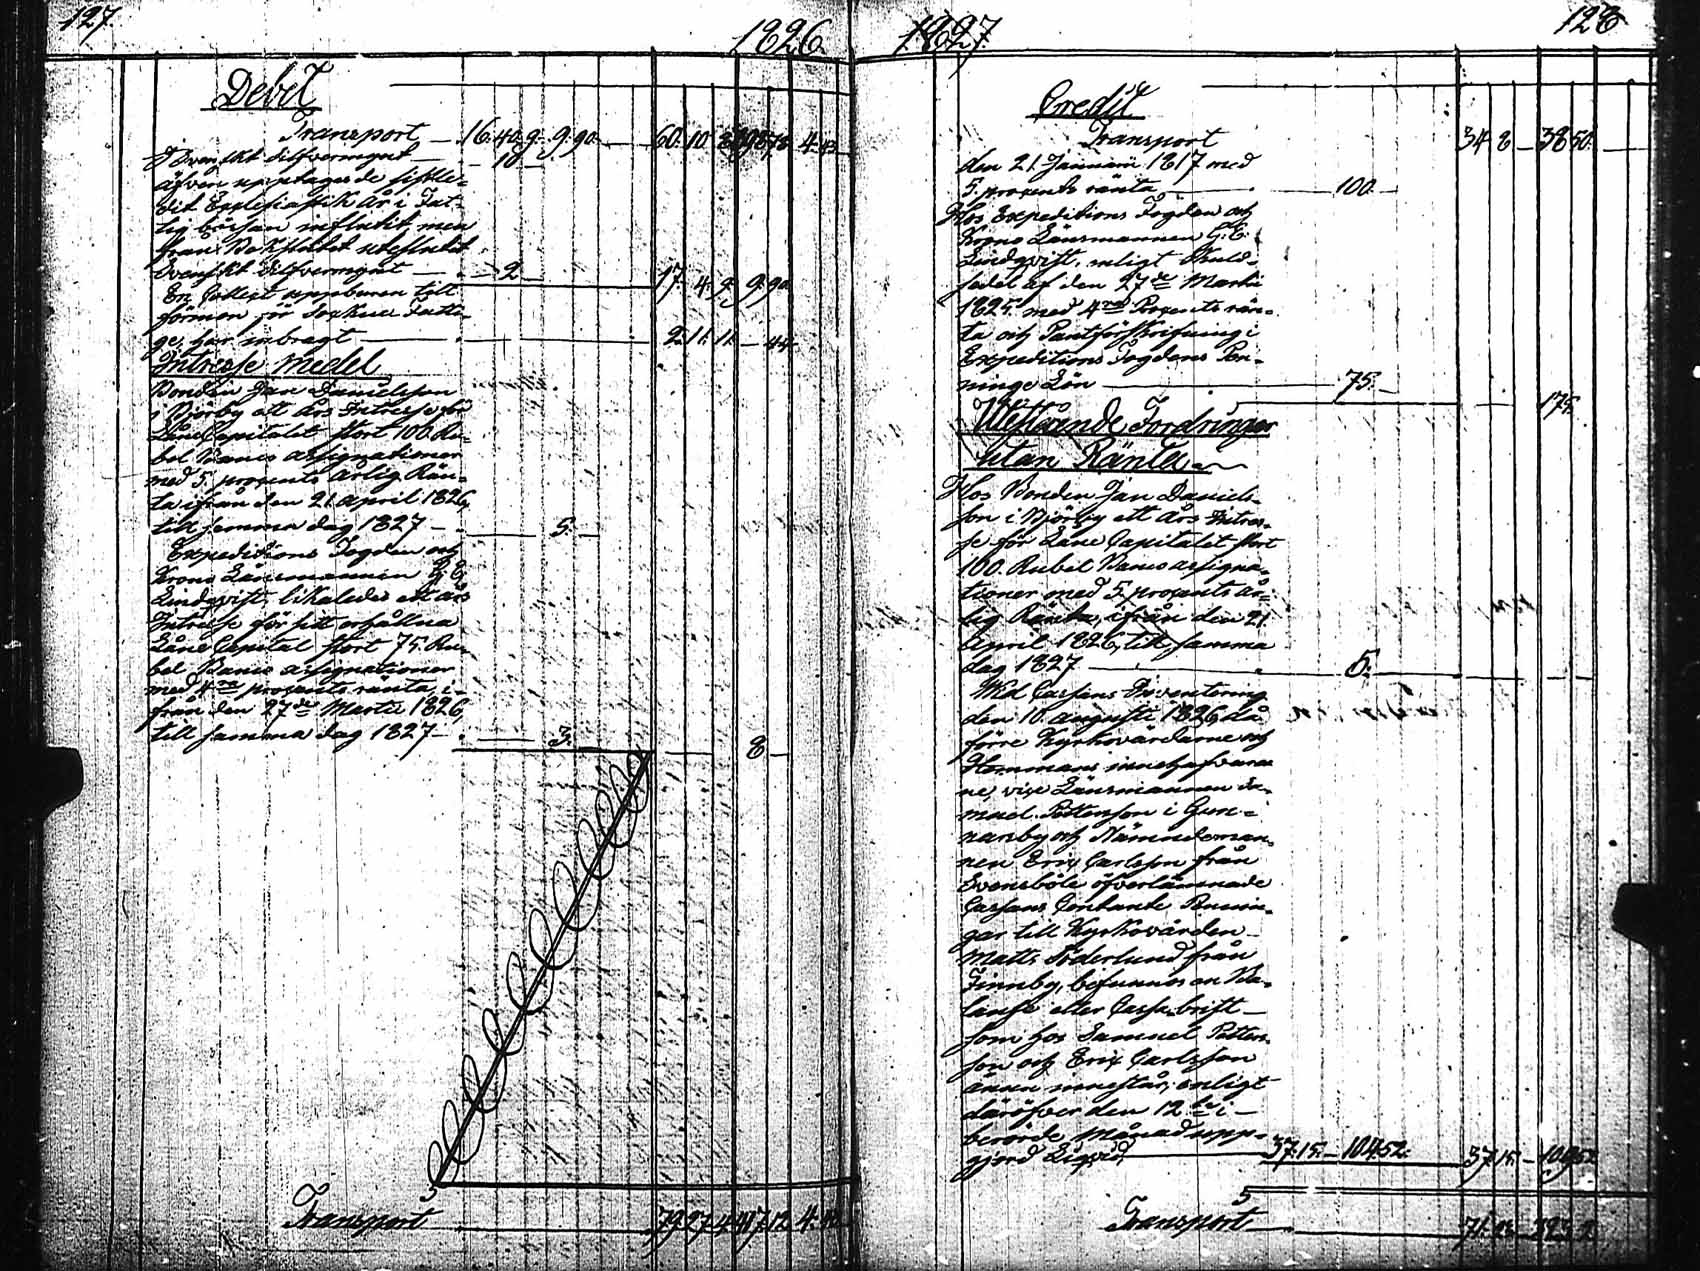 127.
1826.
Debet
Transport — 16.40.9. 9.90 — 60.10
Svenskt Silfvermynt — 10 —
äfven upptagande sistle-
dit Ecclesiastik År i Fat-
tig bössan influtit, men
från
Svenskt Silfvermynt — 2 — 17. 4. 9. 9.90
En Collect uppburen till
förmon för
ge, har inbragt — 2.11.11. — 44
Intresse Medel
Bonden Jan Danielsson
i Björby ett års Intresse för
Låne Capitalet stort 100 Ru-
bel Banco Assignationer
med 5. procents årlig Rän-
ta ifrån den 21. April 1826,
till samma dag 1827 — 5. —
Expeditions Fogden och
Krono Länsmannen G. E.
Lindqvist, likaledes ett års
Intresse för sitt erhållna
Låne Capital stort 75. Ru-
bel Banco Assignationer
med 4ra procents ränta, i-
från den 27de Martii 1826,
till samma dag 1827 — 3. — 8 —
Transport
1827.
128
Credit
Transport 34 8 — 38 50.
den 21. Januari 1817 med
5. procents ränta — 100. —
Hos Expeditions Fogden och
Krono Länsmannen G. E.
Lindqvist, enligt Skuld-
sedel af den 27de Martii
1825. med 4ra Procents rän-
ta och Pantförskrifning i
Expeditions Fogdens Pen-
ninge Lön — 75. — 175.
Utestående Fordringar
utan Ränta
Hos Bonden Jan Daniels-
son i Björby ett års Intres-
se för Låne Capitalet stort
100. Rubel Banco assigna-
tioner med 5. procents år-
lig Ränta, ifrån den 21
April 1826, till samma
dag 1827 — 5. —
Wid Cassans Inventering
den 10. augusti 1826, då
förre Kyrkovärdarne och
Hemmans innehafvarne
ne, vice Länsmannen Sa-
muel Pettersson i Gun-
narsby och Nämndeman-
nen Eric Carlsson från
Svensböle öfverlämnade
Cassans Contanta Pennin-
gar till Kyrkovärden
Matts Söderlund från
Finnby, befunnos en Ba-
lance eller Cassa brist —
som hos Samuel Petters-
son och Eric Carlsson
ännu innestår, enligt
däröfver den 12te i —
berörde Månad upp-
gjord Liqvid — 37.15. — 104.52. 37.15. — 109.52
Transport